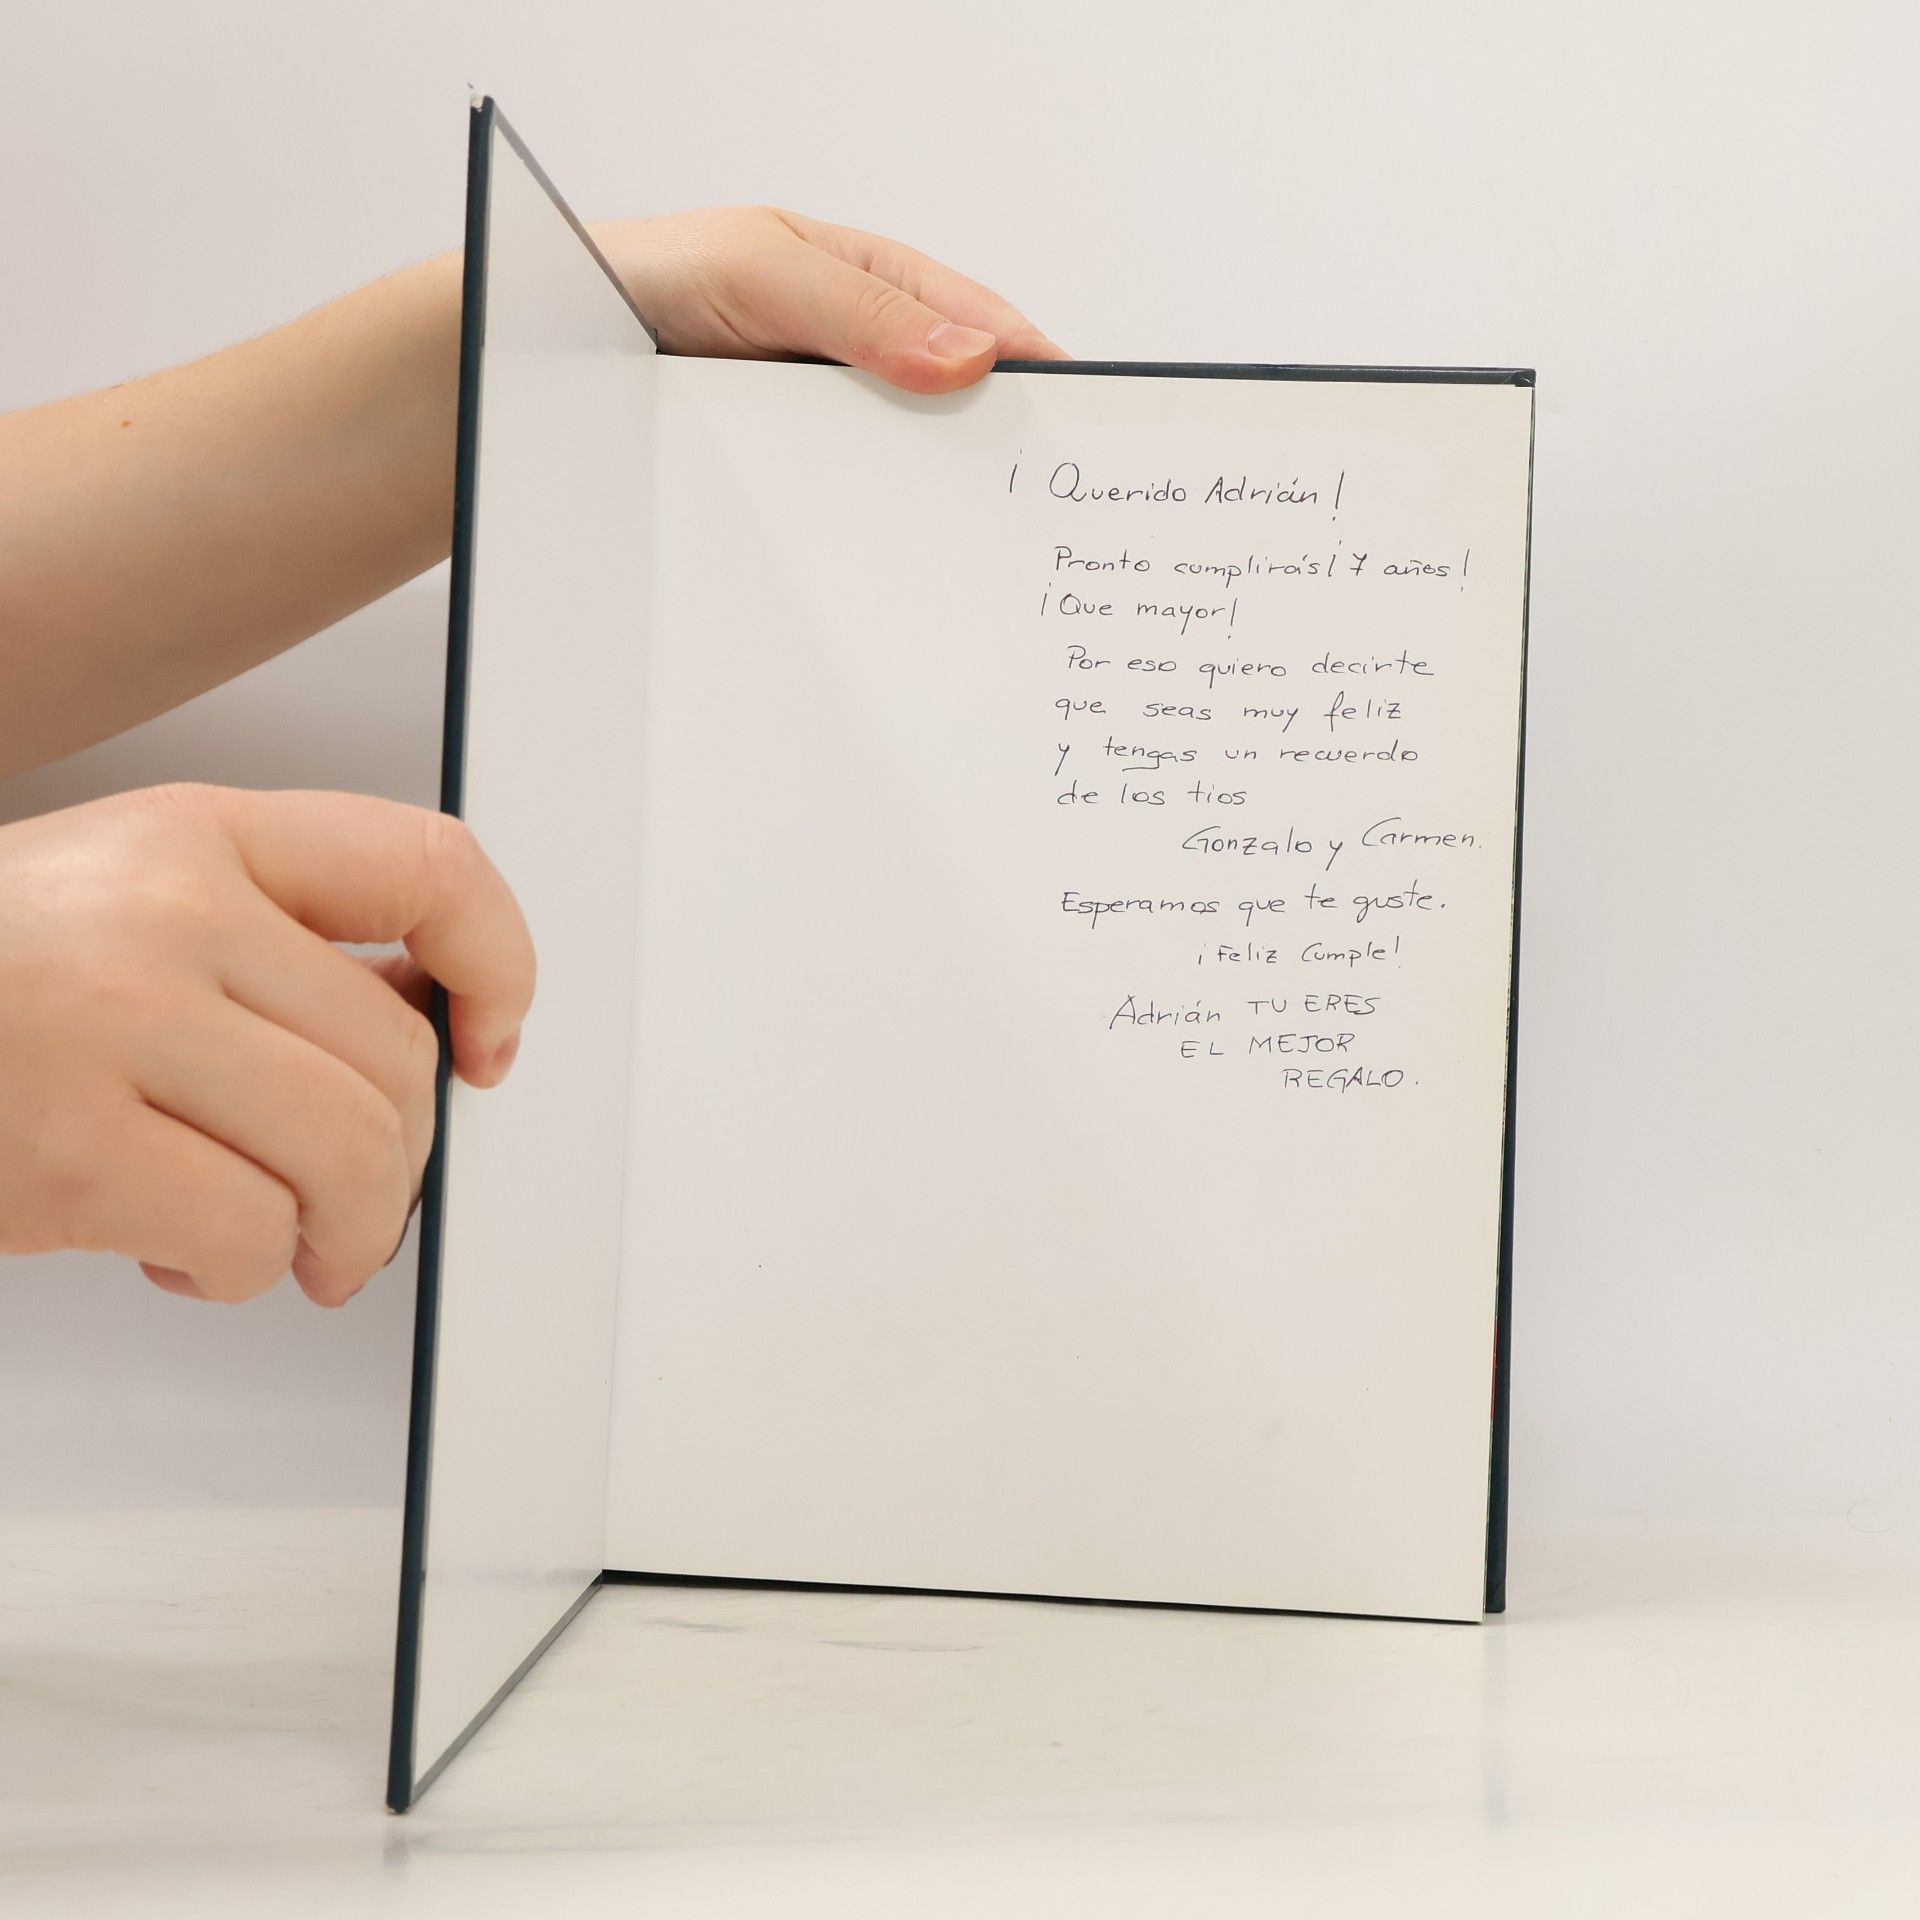 ¡ Querido Adrián !
Pronto cumplirás ¡ 7 años !
¡ Que mayor !
Por eso quiero decirte
que seas muy feliz
y tengas un recuerdo
de los tios
Gonzalo y Carmen.
Esperamos que te guste.
¡ Feliz Cumple !
Adrián TU ERES
EL MEJOR
REGALO.